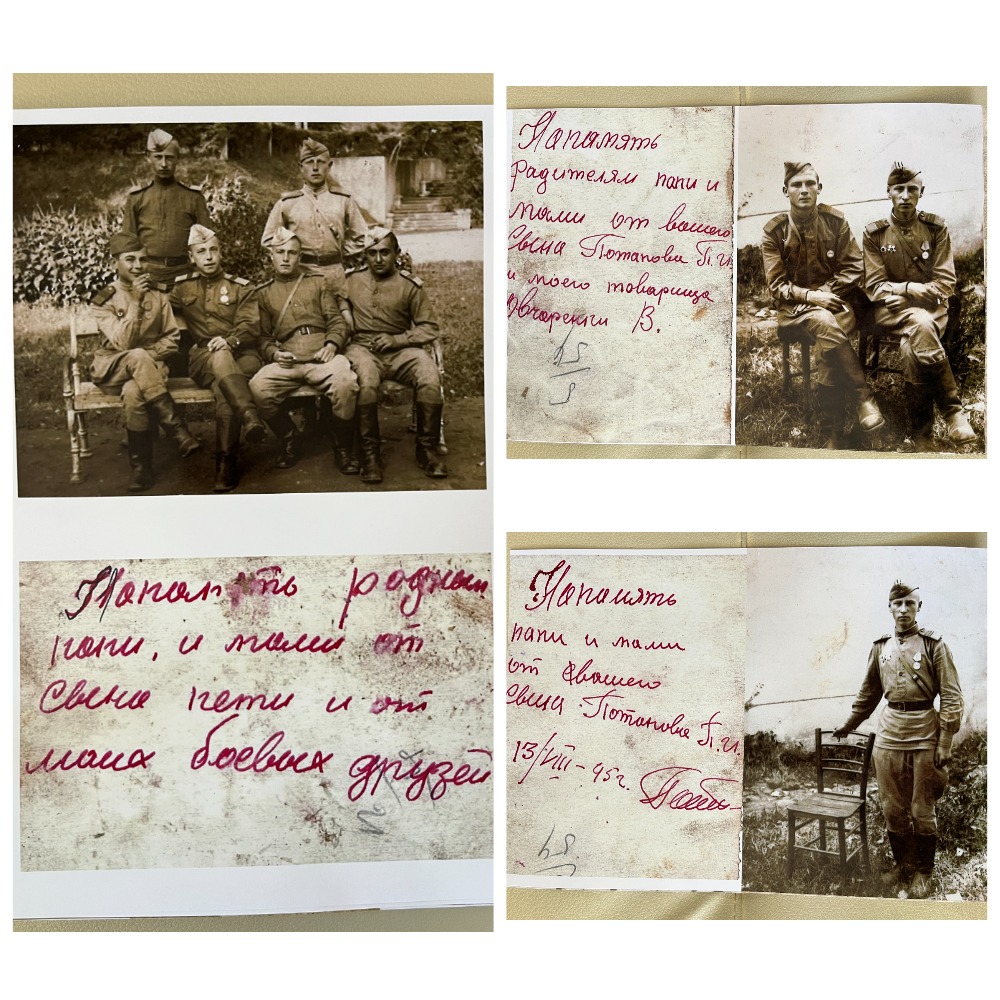 Напамять родным
папи, и мами от
Свена пети и от
моих боевых друзей
Напамять
Радителям папи и
мами от вашего
Свена Потапова П.И.
и моего товарища
Овчаренки В.
Напамять
папи и мами
от вашего
Свена Потапова П.И.
13/VIII-45г.